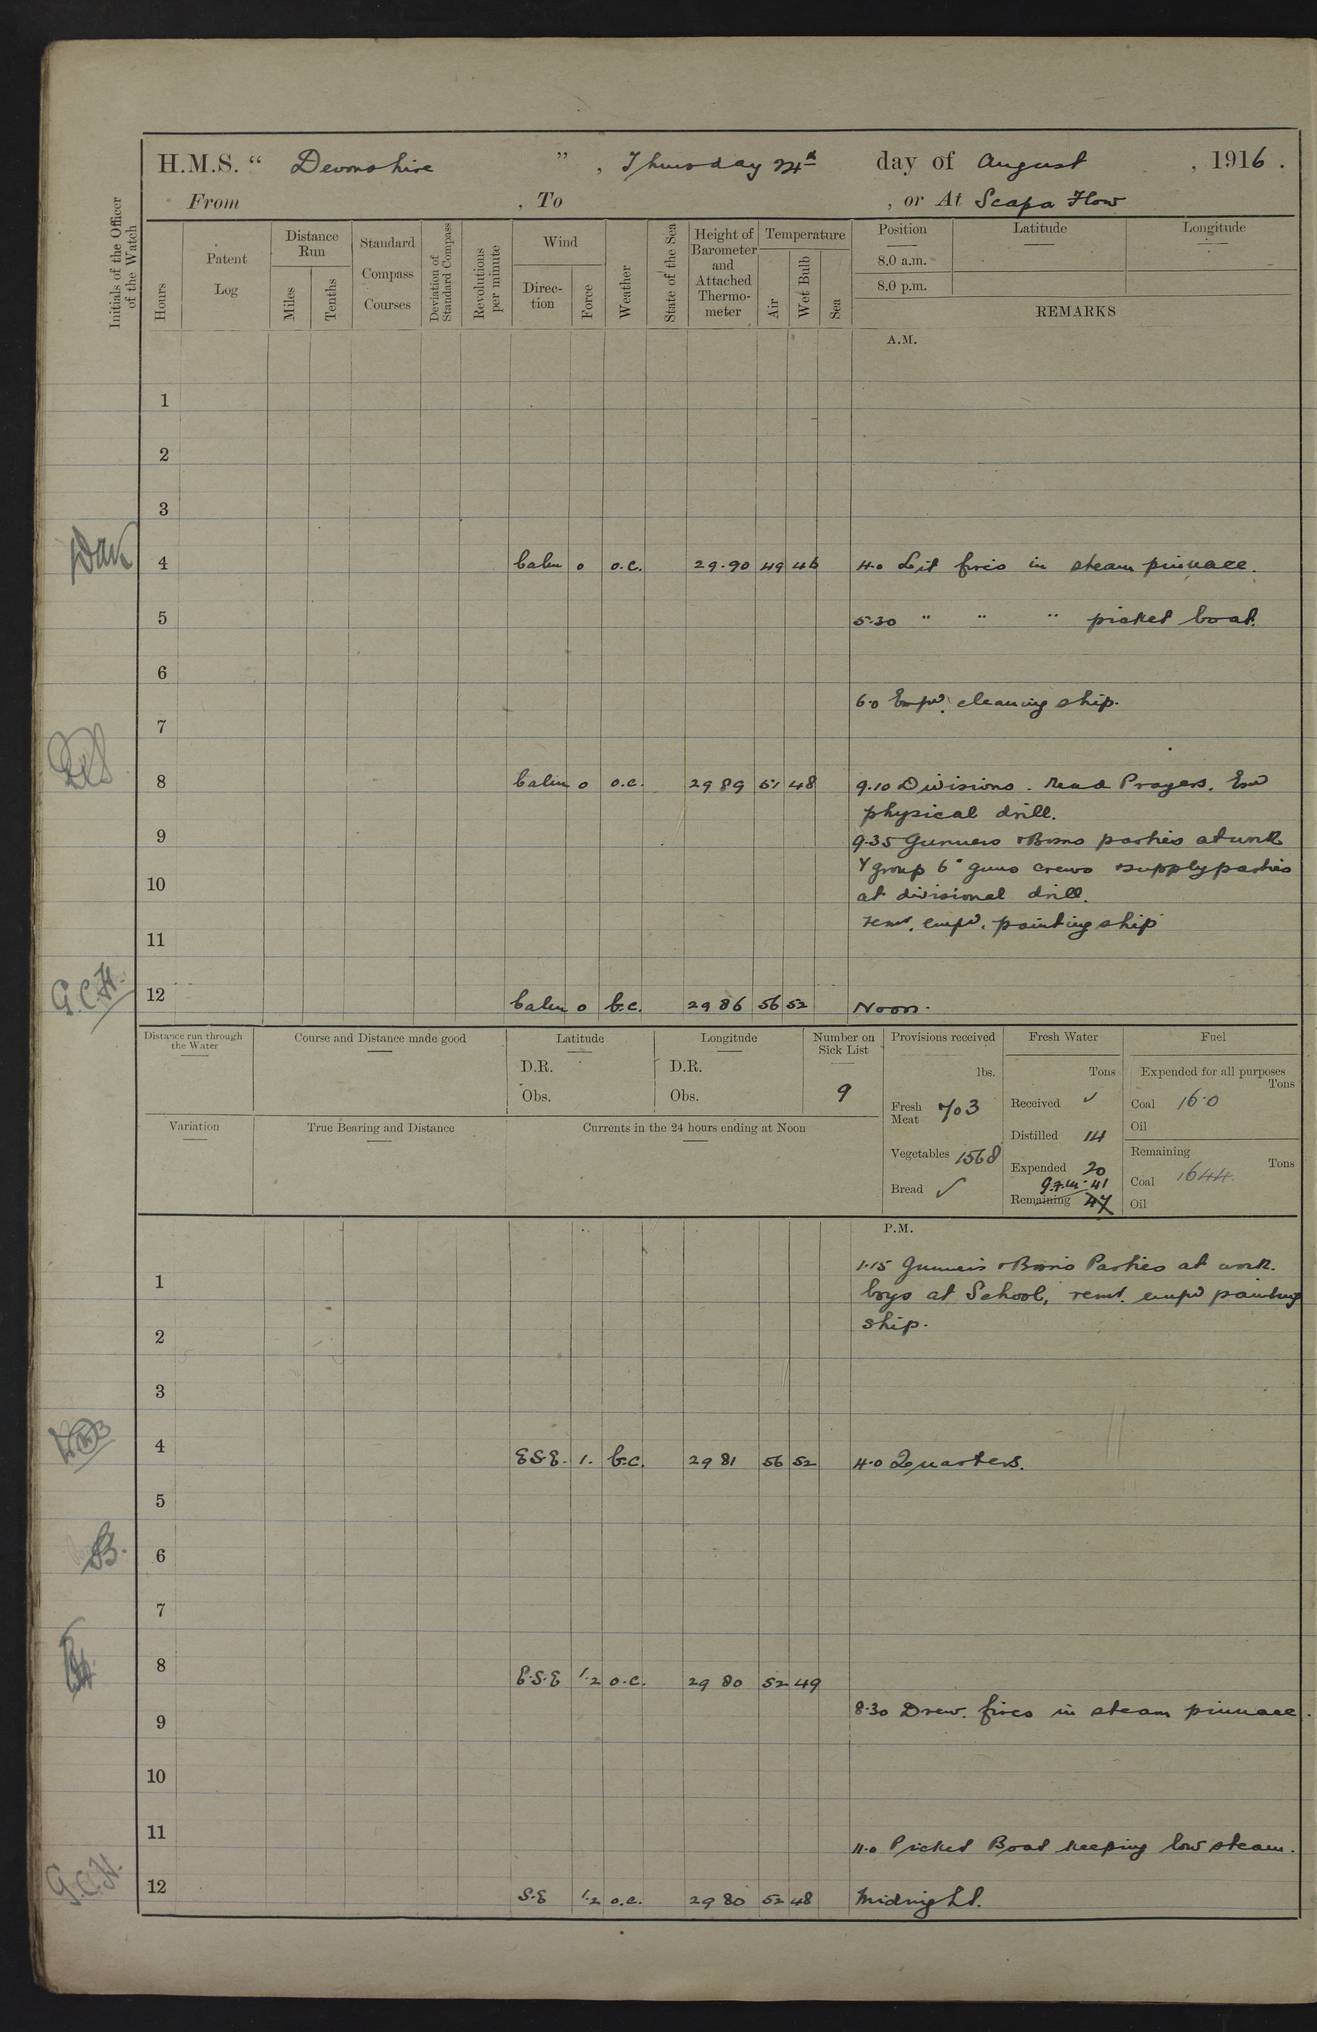 H.M.S. “ Devonshire ” , Thursday 24th day of August , 1916 .
From , To , or At Scapa Flow
Initials of the Officer of the Watch
Hours
Patent Log
Distance Run
Miles
Tenths
Standard Compass Courses
Deviation of Standard Compass
Revolutions per minute
Wind
Direction
Force
Weather
State of the Sea
Height of Barometer and Attached Thermometer
Temperature
Air
Wet Bulb
Sea
Position
8.0 a.m.
8.0 p.m.
Latitude
Longitude
REMARKS
A.M.
1
2
3
4 Calm 0 o.c. 29.90 49 46 4.0 Lit fires in steam pinnace.
5 5.30 " " " picket boat.
6
6.0 Empd. cleaning ship.
7
8 Calm 0 o.c. 29 89 51 48 9.10 Divisions. Read Prayers.
physical drill.
9 9.35 Gunners & Bosns parties at work
Y group 6" guns crews & supply parties
10 at divisional drill.
11 remr. empd. painting ship
G.C.H. 12 Calm 0 b.c. 29 86 56 52 Noon.
Distance run through the Water
Course and Distance made good
Latitude
D.R.
Obs.
Longitude
D.R.
Obs.
Number on Sick List
9
Provisions received
lbs.
Fresh Meat 703
Vegetables 1568
Bread ✓
Fresh Water
Tons
Received ✓
Distilled 14
Expended 20
41
Remaining 47
Fuel
Expended for all purposes
Tons
Coal 160
Oil
Remaining
Tons
Coal 1644
Oil
Variation
True Bearing and Distance
Currents in the 24 hours ending at Noon
P.M.
1 1.15 Gunners & Bosns Parties at work.
boys at School, remr. empd painting
2 ship.
3
4 E.S.E. 1. b.c. 29 81 56 52 4.0 Quarters.
5
6
7
8 E.S.E 1.2 o.c. 29 80 52 49
9 8.30 Drew fires in steam pinnace.
10
11 11.0 Picket Boat keeping low steam.
G.C.H. 12 S.E 1.2 o.c. 29 80 52 48 Midnight.